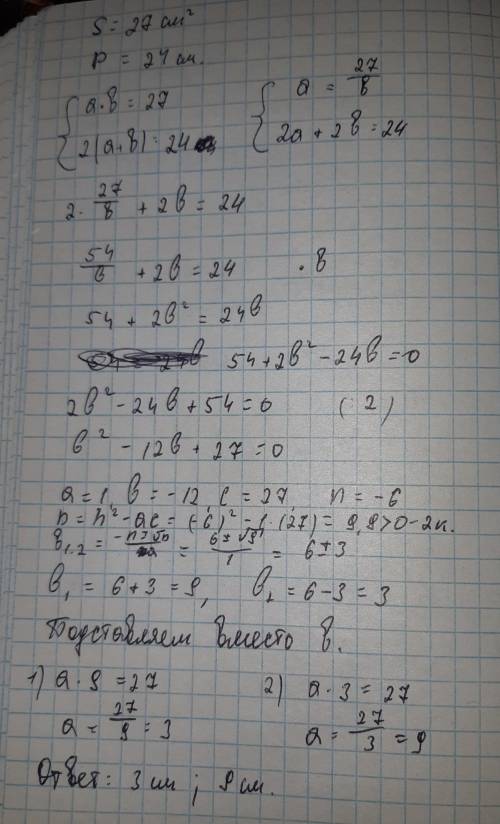 S = 27 см²
P = 24 см.
{ a·b = 27
{ 2(a+b) = 24
{ a = 27/b
{ 2a + 2b = 24
2 · 27/b + 2b = 24
54/b + 2b = 24 · b
54 + 2b² = 24b
54 + 2b² - 24b = 0
2b² - 24b + 54 = 0 ( 2 )
b² - 12b + 27 = 0
a = 1, b = -12, c = 27 n = -6
D = n² - ac = (-6)² - 1·(27) = 9, 9>0 - 2к.
b₁,₂ = (-n ± √D)/a = (6 ± √9)/1 = 6 ± 3
b₁ = 6 + 3 = 9, b₂ = 6 - 3 = 3
Подставляем вместо b.
1) a · 9 = 27
a = 27/9 = 3
2) a · 3 = 27
a = 27/3 = 9
Ответ: 3 см ; 9 см.